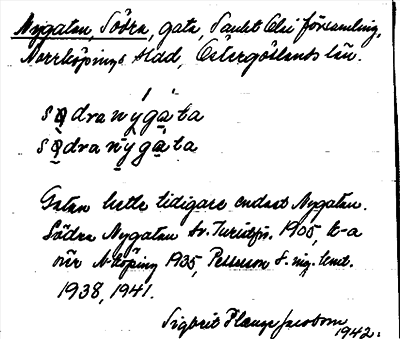 Nygatan, Södra, gata, Sankt Olai församling,
Norrköpings stad, Östergötlands län.
södra nygata
södra nygata
Gatan hette tidigare endast Nygatan.
Södra Nygatan Sv. Turistfjs. 1905, k-a
över N-köping 1935, Persson
1938, 1941.
Sigbrit Plænge Jacobson
1942.